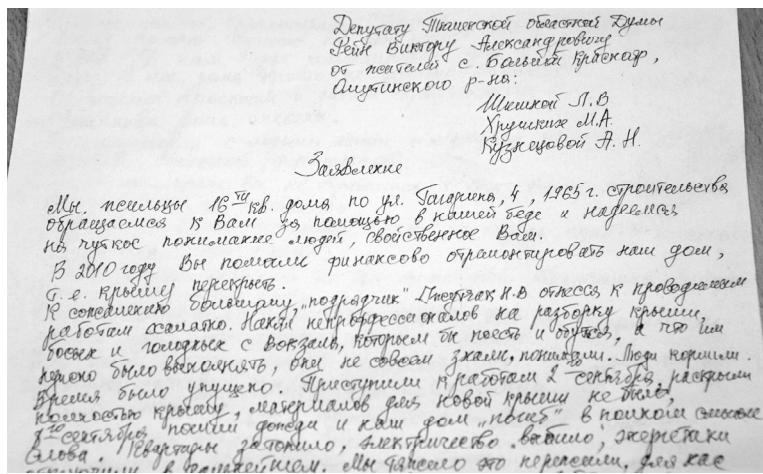 Депутату Тюменской областной Думы
Рейн Виктору Александровичу
от жителей с. Большой Краснояр,
Омутинского р-на:
Шишкой Л.В
Хрушких М.А.
Кузнецовой А. Н.
Заявление
Мы. жильцы 16ти кв. дома по ул. Гагарина, 4, 1965 г. строительства
обращаемся к Вам за помощью в нашей беде и надеемся
на чуткое понимание людей, свойственное Вам.
В 2010 году Вы помогли финансово отремонтировать наш дом,
т.е. крышу перекрыть.
К сожалению большому, "подрядчик" Н.В отнесся к проводимым
работам халатно. Нанял непрофессионалов на разборку крыши,
босых и голодных с вокзала, которым бы поесть и обуться, а что им
нужно было выполнять, они не совсем знали, понимали. Люди кормили.
Время было упущено. Приступили к работам 2го сентября, раскрыли
полностью крышу, материалов для новой крыши не было,
8го сентября пошли дожди и наш дом "погиб" в полном смысле
слова. Квартиры затопило, электричество выбило, энергетики
отключили Мы тяжело это перенесли, для нас